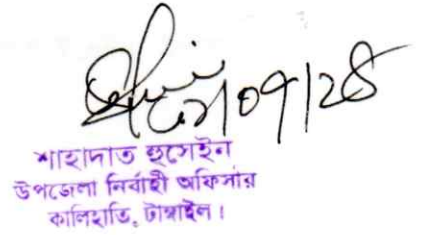 শাহাদাত হুসেইন
উপজেলা নির্বাহী অফিসার
কালিহাতি, টাঙ্গাইল।